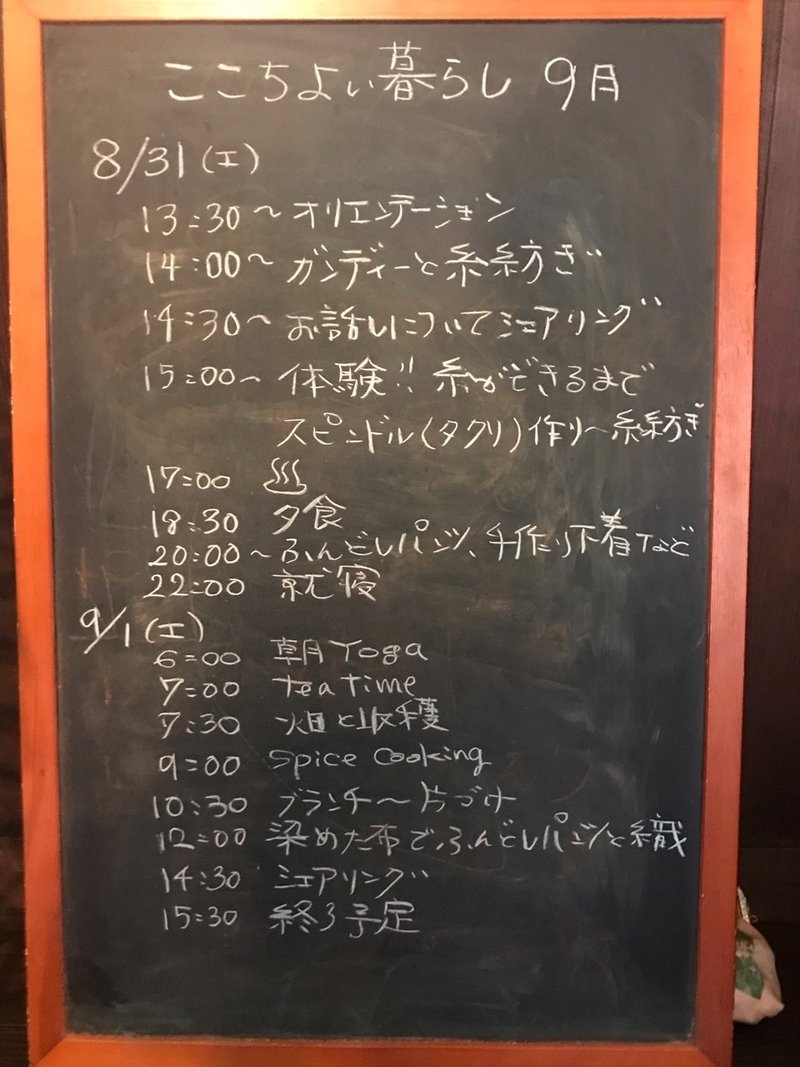 ここちよい暮らし 9月
8/31(土)
13:30〜オリエンテーション
14:00〜ガンディーと糸紡ぎ
14:30〜お話しについてシェアリング
15:00〜体験!! 糸ができるまで
スピンドル(タクリ)作り〜糸紡ぎ
17:00 ♨
18:30 夕食
20:00〜ふんどしパンツ、手作り下着など
22:00 就寝
9/1(土)
6:00 朝Yoga
7:00 tea time
7:30 畑と収穫
9:00 Spice Cooking
10:30 ブランチ〜片づけ
12:00 染めた布でふんどしパンツと織
14:30 シェアリング
15:30 終了予定